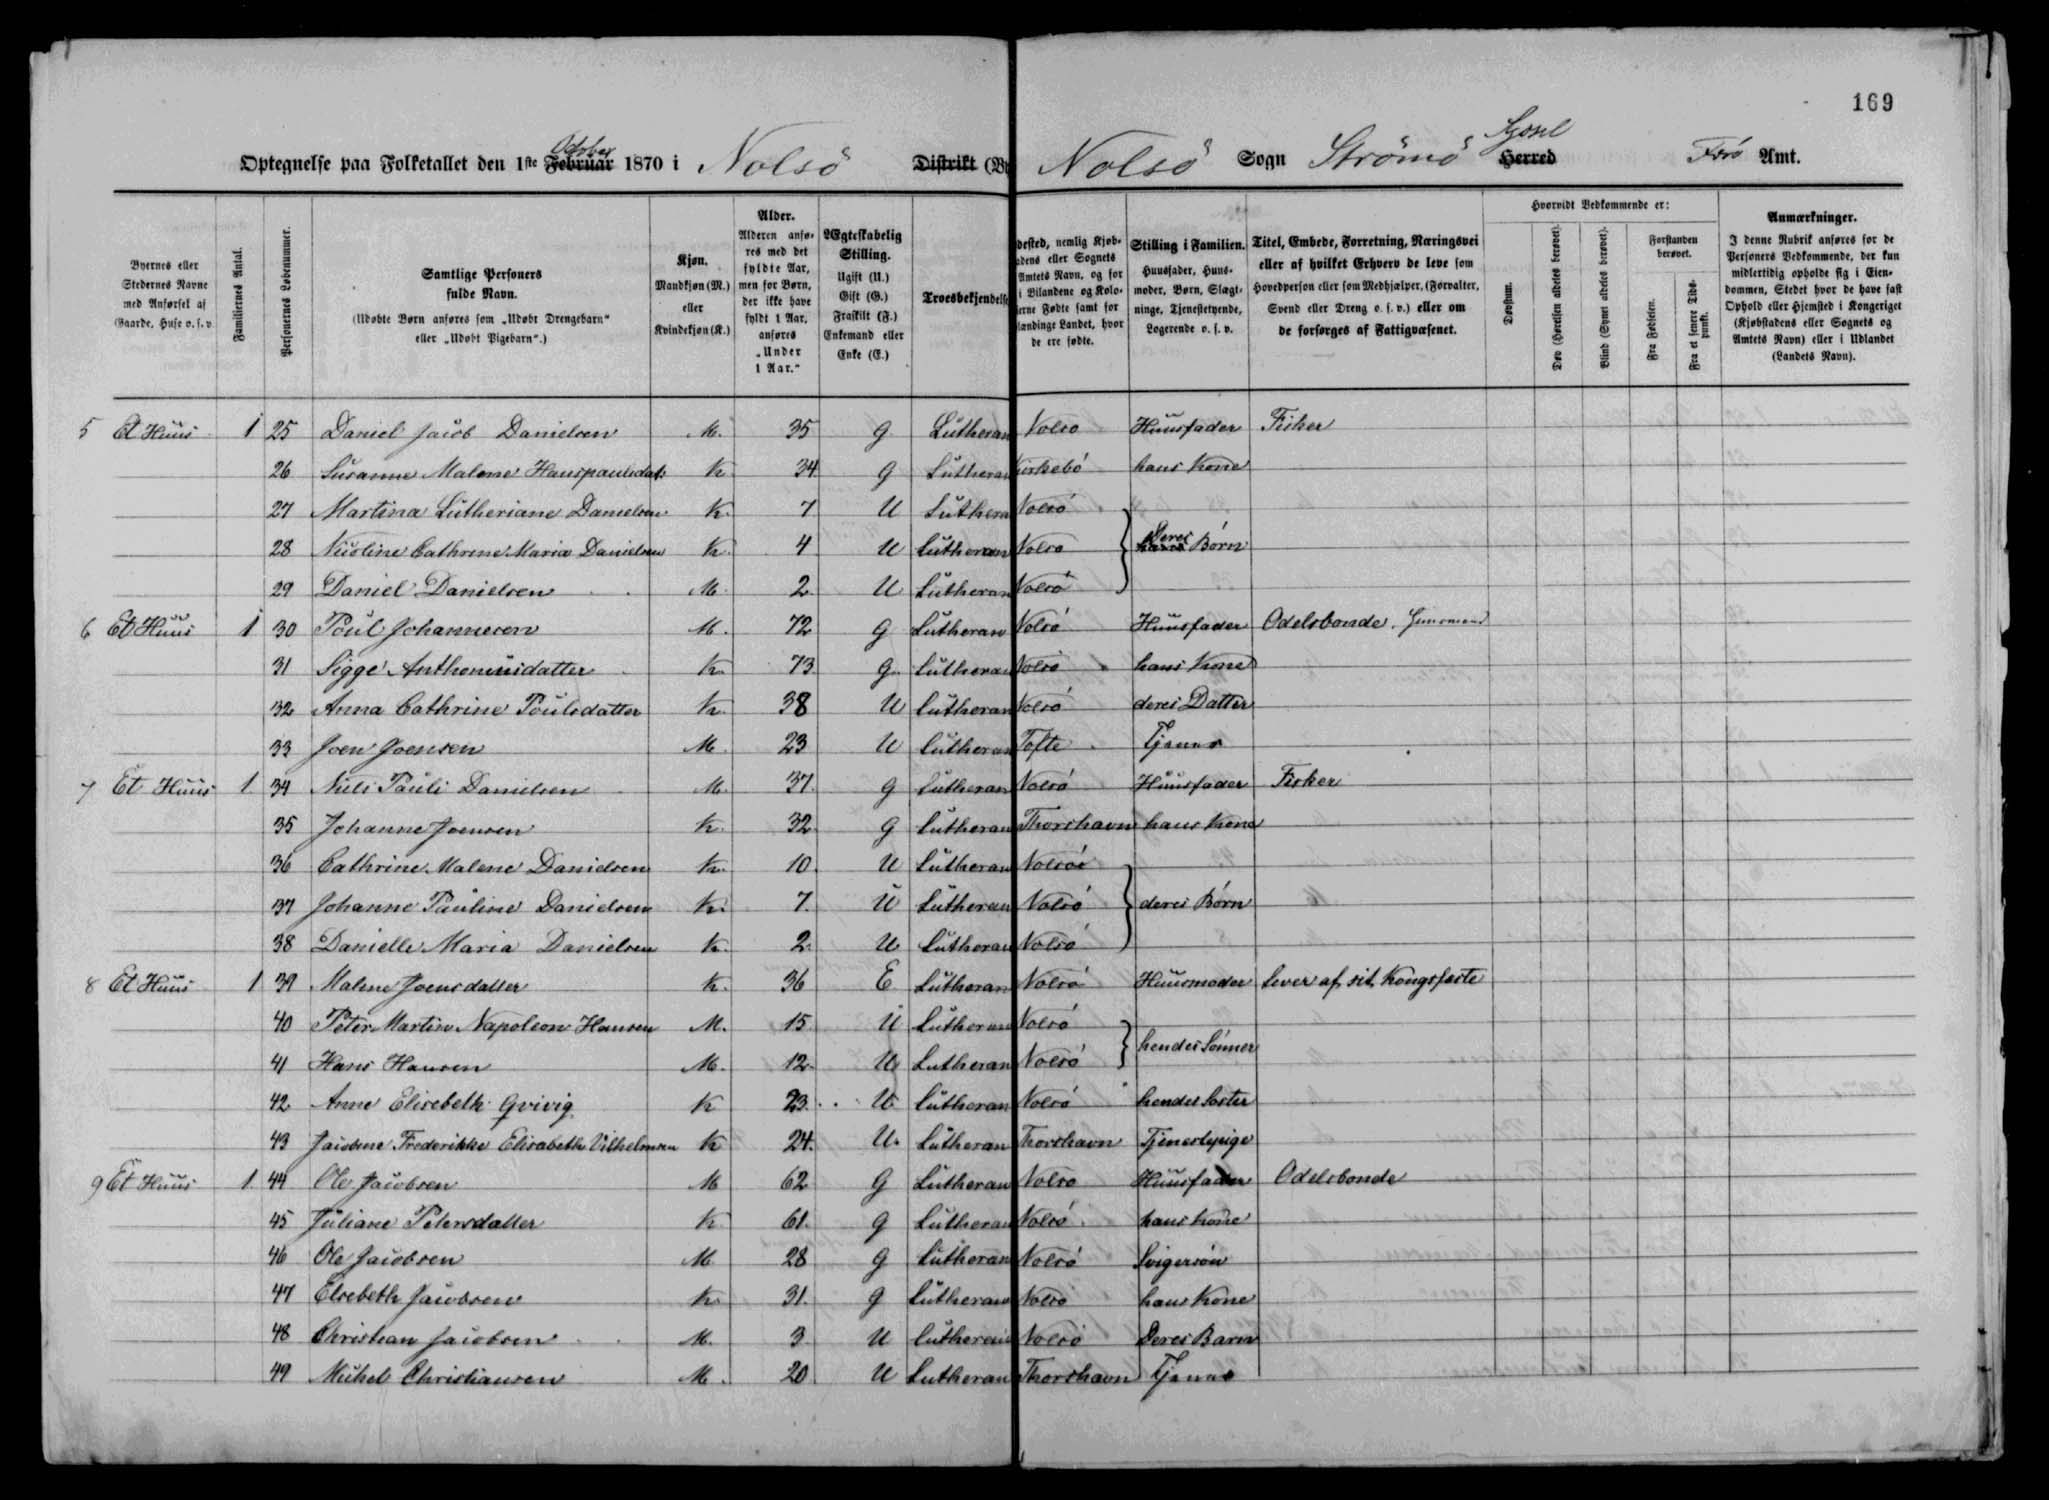 169
Optegnelse paa Folketallet den 1ste Februar October 1870 i Nolsö Distrikt (By Nolsö Sogn Strömö Herred Syssel Færö Amt.
Byernes eller Stedernes Navne med Anførsel af Gaarde, Huse o. s. v.
Familiernes Antal.
Personernes Løbenummer.
Samtlige Personers fulde Navn.
(Udøbte Børn anføres som „Udøbt Drengebarn“ eller „Udøbt Pigebarn“.)
Kjøn.
Mandkjøn (M.) eller Kvindekjøn (K.)
Alder.
Alderen anføres med det fyldte Aar, men for Børn, der ikke have fyldt 1 Aar, anføres „Under 1 Aar.“
Ægteskabelig Stilling.
Ugift (U.) Gift (G.) Fraskilt (F.) Enkemand eller Enke (E.)
Troesbekjendelse
dested, nemlig Kjøb-
adens eller Sognets
Amtets Navn, og for
i Bilandene og Kolo-
erne Fødte samt for
lændinge Landet, hvor
de ere fødte.
Stilling i Familien.
Huusfader, Huusmoder, Børn, Slægtninge, Tjenestetyende, Logerende o. s. v.
Titel, Embede, Forretning, Næringsvei eller af hvilket Erhverv de leve som Hovedperson eller som Medhjælper, (Forvalter, Svend eller Dreng o. s. v.) eller om de forsørges af Fattigvæsenet.
Hvorvidt Vedkommende er:
Døvstum.
Døv (Hørelsen aldeles berøvet).
Blind (Synet aldeles berøvet).
Forstanden berøvet.
Fra Fødselen.
Fra et senere Tidspunkt.
Anmærkninger.
I denne Rubrik anføres for de Personers Vedkommende, der kun midlertidig opholde sig i Eiendommen, Stedet hvor de have fast Ophold eller Hjemsted i Kongeriget (Kjøbstadens eller Sognets og Amtets Navn) eller i Udlandet (Landets Navn).
5 Et Huus 1 25 Daniel Jacob Danielsen M. 35 G Lutheran Nolsö Huusfader Fisker
26 Susanne Malene Hanspaulsdat: K 34 G Lutheran Kirkebö hans Kone
27 Martina Lutheriane Danielsen K. 7 U Luthera Nolsö
28 Nicoline Cathrine Maria Danielsen K. 4 U Lutheran Nolsö hans Deres Börn
29 Daniel Danielsen M. 2 U Lutheran Nolsö
6 Et Huus 1 30 Poul Johannesen M. 72 G Lutheran Nolsö Huusfader Odelsbonde
31 Sigge Anthoniusdatter K. 73 G. Lutheran Nolsö hans Kone
32 Anna Cathrine Poulsdatter K. 38 U Lutheran Nolsö deres Datter
33 Joen Joensen M. 23 U Lutheran Tofte
7 Et Huus 1 34 Niels Pauli Danielsen M. 37. G Lutheran Nolsö Huusfader Fisker
35 Johanne Joensen K. 32 G Lutheran Thorshavn hans Kone
36 Cathrine Malene Danielsen K. 10. U Lutheran Nolsö
37 Johanne Pauline Danielsen K. 7. U Lutheran Nolsö deres Börn
38 Danielle Maria Danielsen K. 2 U Lutheran Nolsö
8 Et Huus 1 39 Malene Joensdatter K. 36 E Lutheran Nolsö Huusmoder Lever af sit Kongsfæste
40 Peter Martin Napoleon Hansen M. 15 U Lutheran Nolsö
hendes Sönner
41 Hans Hansen M. 12. U Lutheran Nolsö
42 Anne Elisebeth Qvivig K 23. U Lutheran Nolsö hendes Söster
43 Jacobine Frederikke Elisabeth Vilhelmsen K 24. U. Lutheran Thorshavn Tjenestepige
9 Et Huus 1. 44 Ole Jacobsen M 62 G Lutheran Nolsö Huusfader Odelsbonde
45 Juliane Petersdatter K 61. G Lutheran Nolsö hans Kone
46 Ole Jacobsen M 28 G Lutheran Nolsö Svigersön
47 Elsebeth Jacobsen K. 31. G Lutheran Nolsö hans Kone
48 Christian Jacobsen M. 3 U Lutheran Nolsö Deres Barn
49 Michel Christiansen M. 20 U Lutheran Thorshavn